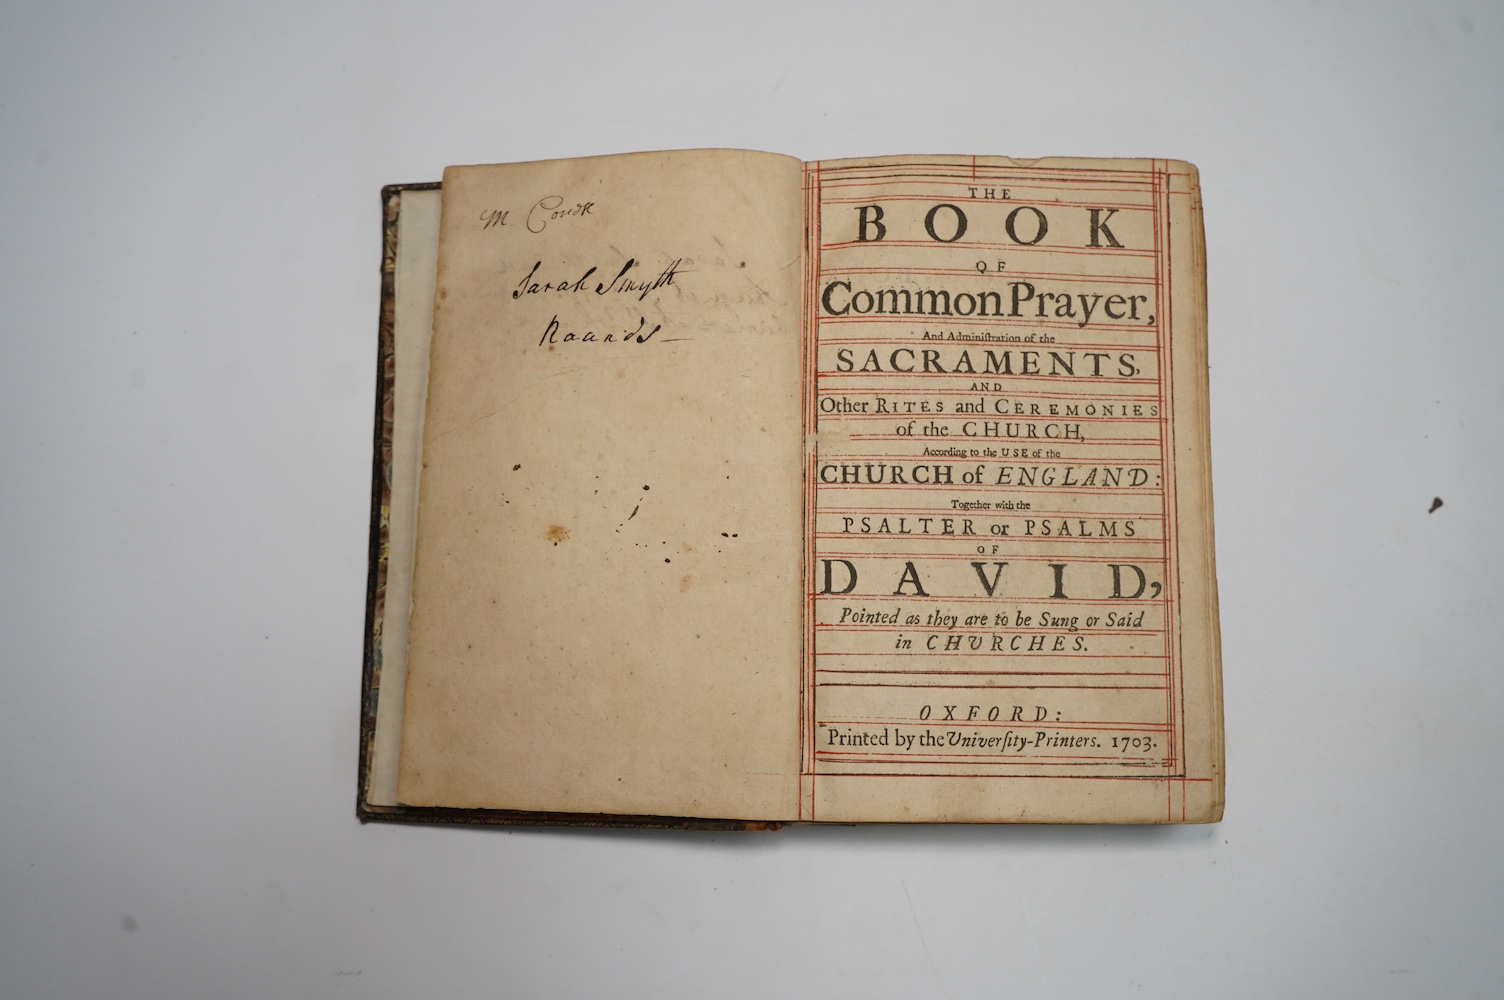 Sarah Smyth
Raands
THE
BOOK
OF
Common Prayer,
And Adminiſtration of the
SACRAMENTS,
AND
Other RITES and CEREMONIES
of the CHURCH,
According to the USE of the
CHURCH of ENGLAND:
Together with the
PSALTER or PSALMS
OF
DAVID,
Pointed as they are to be Sung or Said
in CHURCHES.
OXFORD:
Printed by the Univerſity-Printers. 1703.